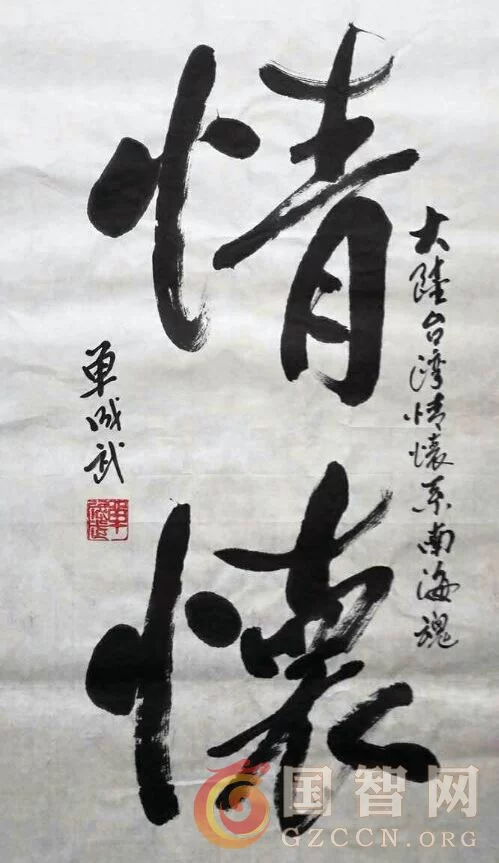 大陸台湾情懷系南海魂
情懷
单成武
国智网
GZCCN.ORG